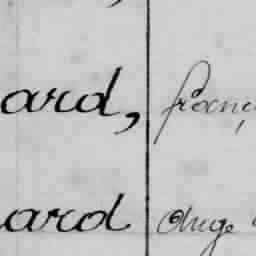 ard, franç
ard Ange